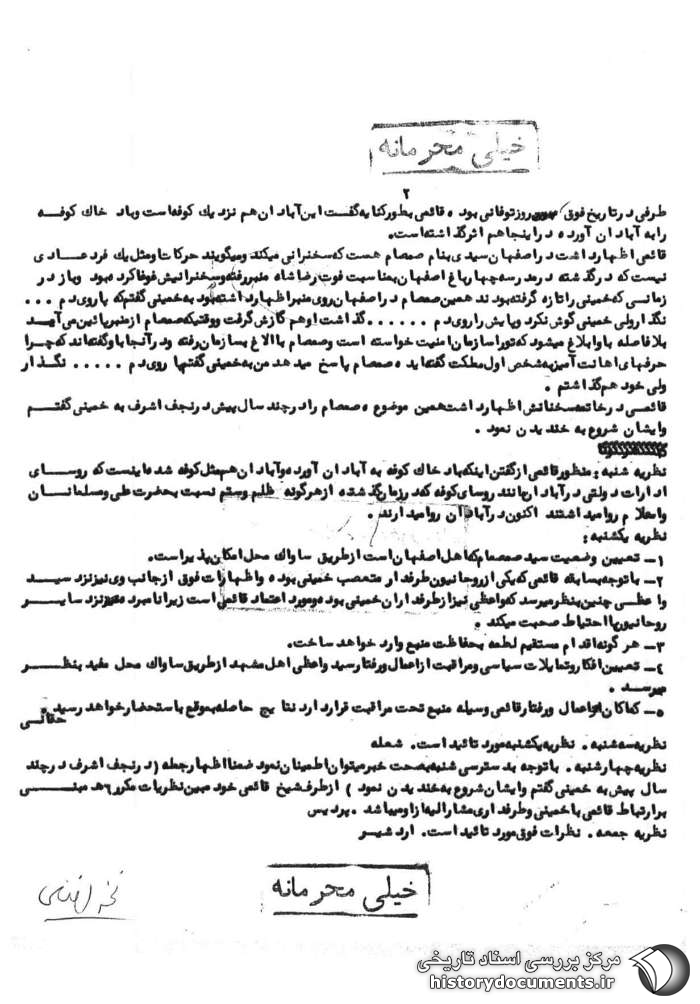 خیلی محرمانه
۲
طرفی در تاریخ فوق روز توفانی بوده قائمی بطور کنایه گفت این آبادان هم نزدیک کوفه است و باد خاک کوفه
را به آبادان آورده در اینجا هم اثر گذاشته است.
قائمی اظهار داشت در اصفهان سیدی بنام صمصام هست که سخنرانی میکند و میگویند حرکات و مثل یک فرد عادی
نیست که در گذشته در مدرسه چهارباغ اصفهان بمناسبت فوت رضا شاه منبر رفته و سخنرانیش غوغا کرده بود و باز در
زمانی که خمینی را تازه گرفته بودند همین صمصام در اصفهان روی منبر اظهار داشته بود به خمینی گفتم که پا روی دم ...
نگذار ولی خمینی گوش نکرد و پایش را روی دم ...... گذاشت او هم گازش گرفت و وقتیکه صمصام از منبر پائین می آید
بلافاصله باو ابلاغ میشود که تو را سازمان امنیت خواسته است و صمصام با الاغ بسازمان رفته و در آنجا باو گفته اند که چرا
حرفهای اهانت آمیز به شخص اول مملکت گفته اید صمصام پاسخ میدهد من به خمینی گفتم پا روی دم ..... نگذار
ولی خود هم گذاشتم.
قائمی در خاتمه سخنانش اظهار داشت همین موضوع صمصام را در چند سال پیش در نجف اشرف به خمینی گفتم
و ایشان شروع به خندیدن نمود.
نظریه شنبه: منظور قائمی از گفتن اینکه باد خاک کوفه به آبادان آورده و آبادان هم مثل کوفه شده اینست که روسای
ادارات دولتی در آبادان مانند روسای کوفه که در زمان گذشته از هرگونه ظلم و ستم نسبت بحضرت علی و مسلمانان
و اسلام روا میداشتند اکنون در آبادان روا میدارند.
نظریه یکشنبه:
۱- تعیین وضعیت سید صمصام که اهل اصفهان است از طریق ساواک محل امکان پذیر است.
۲- با توجه بسابقه قائمی که یکی از روحانیون طرفدار متعصب خمینی بوده و اظهارات فوق از جانب وی نیز نزد سید
واعظی چنین بنظر میرسد که واعظی نیز از طرفداران خمینی بوده و مورد اعتماد قائمی است زیرا نامبرده نیز نزد سایر
روحانیون با احتیاط صحبت میکند.
۳- هر گونه اقدام مستقیم لطمه بحفاظت منبع وارد خواهد ساخت.
۴- تعیین افکار و تمایلات سیاسی و مراقبت از اعمال و رفتار سید واعظی اهل مشهد از طریق ساواک محل مفید بنظر
میرسد.
۵- کماکان اعمال و رفتار قائمی وسیله منبع تحت مراقبت قرار دارد نتایج حاصله بموقع باستحضار خواهد رسید.
حقانی
نظریه سه شنبه. نظریه یکشنبه مورد تائید است. شعله
نظریه چهارشنبه. با توجه بدسترسی شنبه بصحت خبر میتوان اطمینان نمود ضمنا اظهار جمله (در نجف اشرف در چند
سال پیش به خمینی گفتم و ایشان شروع به خندیدن نمود) از طرف شیخ قائمی خود مبین نظریات مکرر ۶هـ مبنی
بر ارتباط قائمی با خمینی و طرفداری مشارالیه از او میباشد. پردیس
نظریه جمعه. نظرات فوق مورد تائید است. اردشیر
خیلی محرمانه
مرکز بررسی اسناد تاریخی
historydocuments.ir